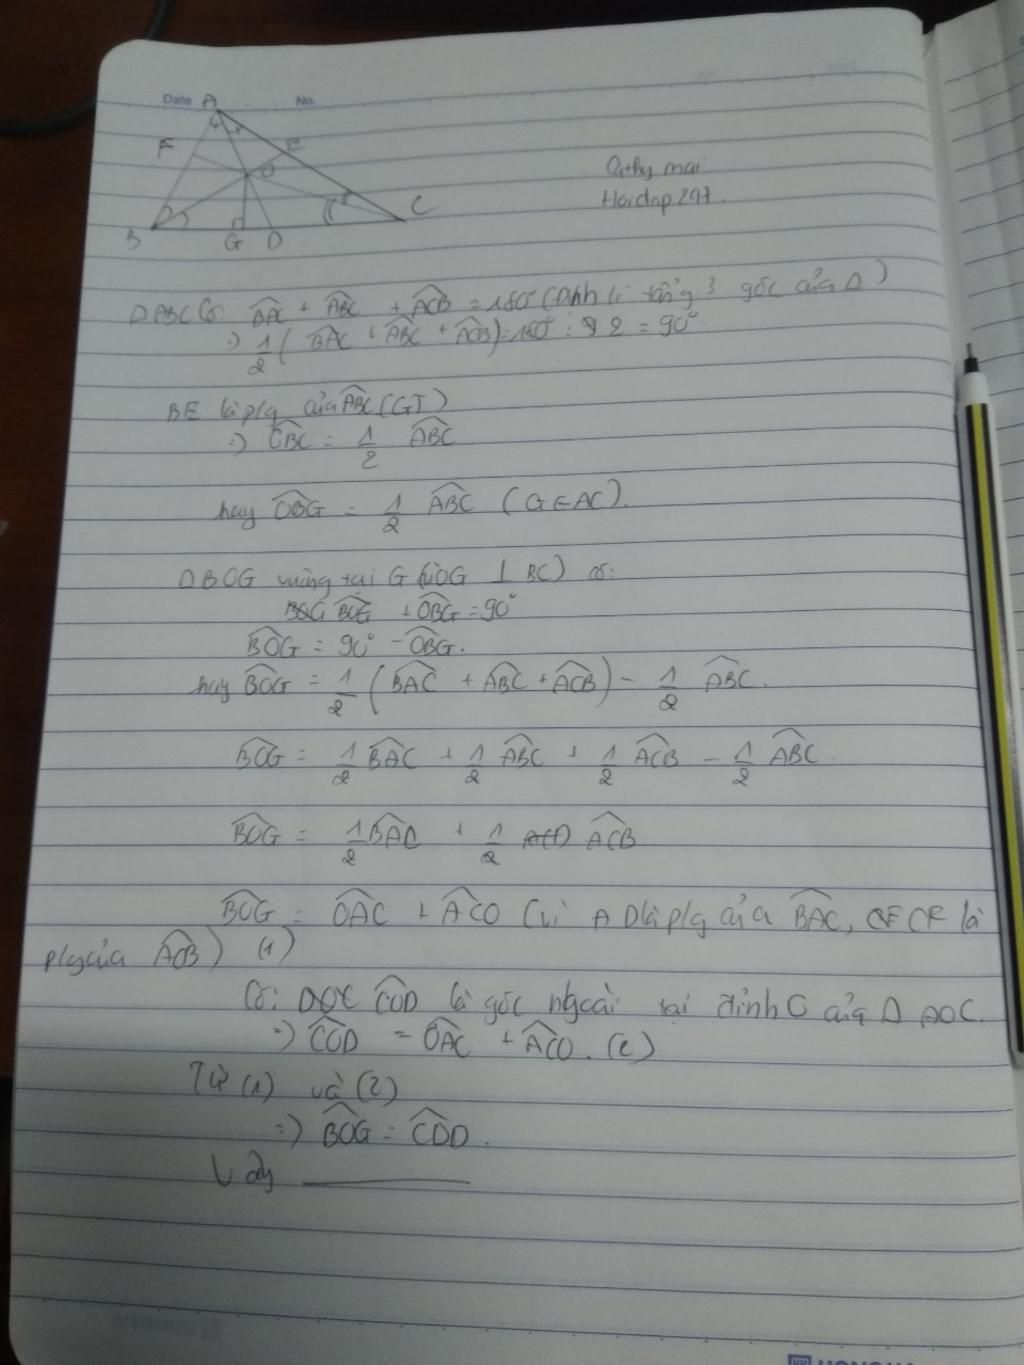 Date No.
A
F E
O
Cathy mai
Hoidap247.
B G D C
ΔABC Có: BAC + ABC + ACB = 180° (Định lí tổng 3 góc của Δ)
=> 1/2 ( BAC + ABC + ACB) = 180° : 2 = 90°.
BE là p/g của ABC (GT)
=> OBC = 1/2 ABC
hay OBG = 1/2 ABC ( G ∈ AC ).
ΔBOG vuông tại G (vì OG ⊥ BC) có:
BOG + OBG = 90°
BOG = 90° - OBG.
hay BOG = 1/2 ( BAC + ABC + ACB ) - 1/2 ABC.
BOG = 1/2 BAC + 1/2 ABC + 1/2 ACB - 1/2 ABC.
BOG = 1/2 BAC + 1/2 ACB
BOG = OAC + ACO (Vì AD là p/g của BAC, CF là
p/g của ACB) (1)
Có: COD là góc ngoài tại đỉnh O của Δ AOC.
=> COD = OAC + ACO. (2)
Từ (1) và (2)
=> BOG = COD.
Vậy